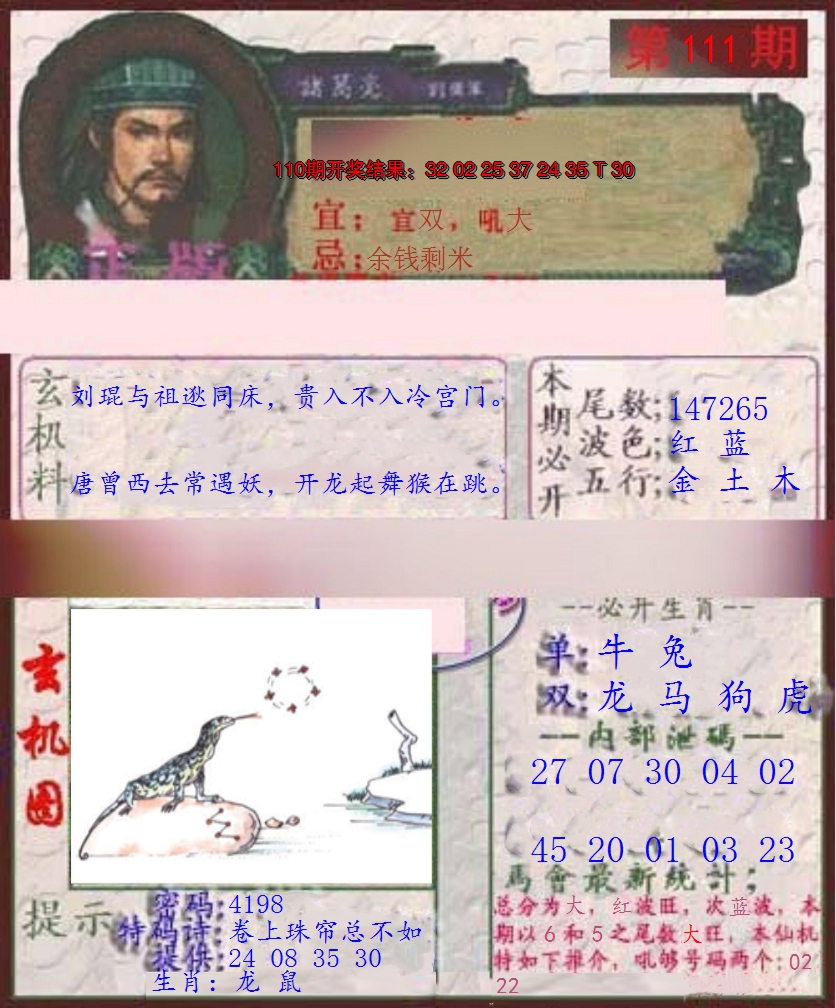 第111期
諸葛亮
110期开奖结果：32 02 25 37 24 35 T 30
宜：宜双，吼大
忌：余钱剩米
正版
玄机料
刘琨与祖逖同床，贵入不入冷宫门。
唐曾西去常遇妖，开龙起舞猴在跳。
本期必开
尾数；147265
波色；红 蓝
五行；金 土 木
玄机图
--必开生肖--
单：牛 兔
双：龙 马 狗 虎
—内部泄碼—
27 07 30 04 02
45 20 01 03 23
馬會最新统計；
总分为大，红波旺，次蓝波，本
期以6和5之尾数大旺，本仙机
特如下推介，吼够号码两个：02
22
提示
密码：4198
特码诗：卷上珠帘总不如
提供：24 08 35 30
生肖：龙 鼠